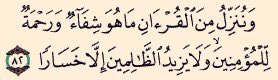 وَنُنَزِّلُ مِنَ ٱلْقُرْءَانِ مَا هُوَ شِفَآءٌ وَرَحْمَةٌ
لِّلْمُؤْمِنِينَ وَلَا يَزِيدُ ٱلظَّٰلِمِينَ إِلَّا خَسَارًا ٨٢